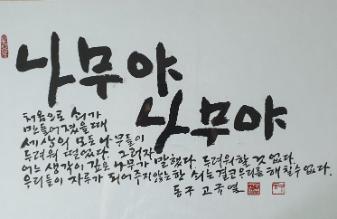 나무야
나무야
처음으로 쇠가
만들어졌을때
세상의 모든 나무들이
두려워 떨었다. 그러자
어느 생각이 깊은 나무가 말했다. 두려워할 것 없다.
우리들이 자루가 되어주지않는한 쇠는결코우리를해칠수없다.
동구 고국열